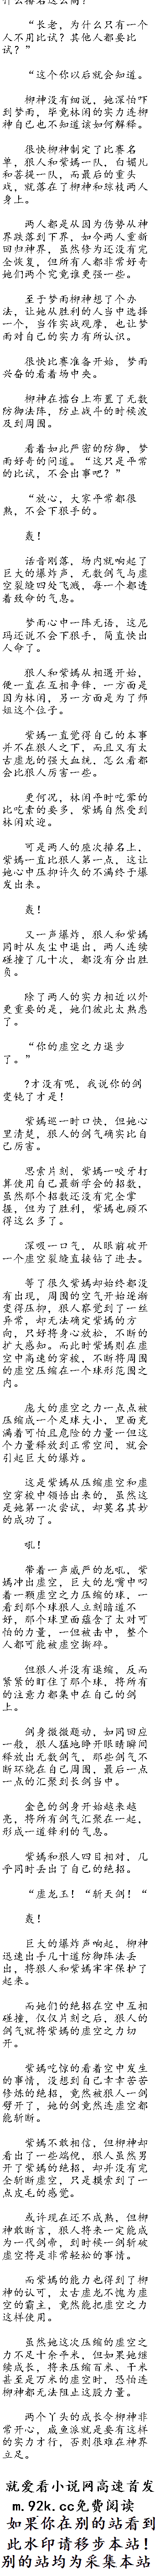 “长老，为什么只有一个
人不用比试？其他人都要比
试？”
“这个你以后就会知道。
柳神没有细说，她深怕吓
到梦雨，毕竟林闲的实力连柳
神自己也不知道该如何解释。
很快柳神制定了比赛名
单，狠人和紫嫣一队，白媚儿
和菩提一队，而最后的重头
戏，就落在了柳神和琼枝两人
身上。
两人都是从因为伤势从神
界跌落到下界，如今两人重新
回归神界，虽然修为还没有完
全恢复，但所有人都非常好奇
她们两个究竟谁更强一些。
至于梦雨柳神想了个办
法，让她从胜利的人当中选择
一个，当作实战观摩，也让梦
雨对自己的实力有所认识。
很快比赛准备开始，梦雨
兴奋的看着场中央。
柳神在擂台上布置了无数
防御法阵，防止战斗的时候波
及到周围。
看着如此严密的防御，梦
雨好奇的问道。“这只是平常
的比试，不会出事吧？”
“放心，大家平常都很
熟，不会下狠手的。
轰！
话音刚落，场内就响起了
巨大的爆炸声，无数剑气与虚
空裂缝四处飞溅，每一个都透
着致命的气息。
梦雨心中一阵无语，这尼
玛还说不会下狠手，简直快出
人命了。
狠人和紫嫣从相遇开始，
便一直在互相争锋，一方面是
因为林闲，另一方面是为了师
姐这个位子。
紫嫣一直觉得自己的本事
并不在狠人之下，而且又有太
古虚龙的强大血统，怎么看都
会比狠人厉害一些。
更何况，林闲平时吃荤的
比吃素的要多，紫嫣自然受到
林闲欢迎。
可是两人的座次排名上，
紫嫣一直比狠人第一点，这让
她心中压抑许久的不满终于爆
发出来。
轰！
又一声爆炸，狠人和紫嫣
同时从灰尘中退出，两人连续
碰撞了几十次，都没有分出胜
负。
除了两人的实力相近以外
更重要的是，她们彼此太熟悉
了。
“你的虚空之力退步
了。”
?才没有呢，我说你的剑
变钝了才是！
紫嫣逞一时口快，但她心
里清楚，狠人的剑气确实比自
己厉害。
思索片刻，紫嫣一咬牙打
算使用自己最新学会的招数，
虽然那个招数还没有完全掌
握，但为了胜利，紫嫣也顾不
得这么多了。
深吸一口气，从眼前破开
一个虚空裂缝直接钻了进去。
等了很久紫嫣却始终都没
有出现，周围的空气开始逐渐
变得压抑，狠人察觉到了一丝
异常，却无法确定紫嫣的方
向，只好将身心放松，不断的
扩大感知。而此时紫嫣则在虚
空中高速的穿梭，不断将周围
的虚空压缩在一个球形范围之
内。
庞大的虚空之力一点点被
压缩成一个足球大小，里面充
满着可怕且危险的力量一但这
个力量释放到正常空间，就会
引起巨大的爆炸。
这是紫嫣从压缩虚空和虚
空穿梭中领悟出来的，虽然这
是她第一次尝试，却莫名其妙
的成功了。
吼！
带着一声威严的龙吼，紫
嫣冲出虚空，巨大的龙嘴中叼
着一颗虚空之力压缩的球，一
看到那个球狠人立刻暗道不
好，那个球里面蕴含了太对可
怕的力量，一但被击中，整个
人都可能被虚空撕碎。
但狠人并没有退缩，反而
紧紧的盯住了那个球，将所有
的注意力都集中在自己的剑
上。
剑身微微颤动，如同回应
一般，狠人猛地睁开眼睛瞬间
释放出无数剑气，那些剑气不
断环绕在自己周围，最后一点
一点的汇聚到长剑当中。
金色的剑身开始越来越
亮，将所有剑气汇聚在一起，
形成一道锋利的气息。
紫嫣和狠人四目相对，几
乎同时丢出了自己的绝招。
“虚龙玉！”“斩天剑！“
轰！
巨大的爆炸声响起，柳神
迅速出手几十道防御阵法丢
出，将狠人和紫嫣牢牢保护了
起来。
而她们的绝招在空中互相
碰撞，仅仅片刻之后，狠人的
剑气就将紫嫣的虚空之力切
开。
紫嫣吃惊的看着空中发生
的事情，没想到自己辛辛苦苦
修炼的绝招，竟然被狠人一剑
劈开了，她的剑竟然连虚空都
能斩断。
紫嫣不敢相信，但柳神却
看出了一些端倪，狠人虽然男
开了紫嫣的绝招，却并没有完
全斩断虚空，只是摸索到了一
点皮毛的感觉。
或许现在还不成熟，但柳
神敢断言，狠人将来一定能成
为一代剑帝，到时候一剑斩破
虚空将是非常轻松的事情。
而紫嫣的能力也得到了柳
神的认可，太古虚龙不愧为虚
空的霸主，竟然能把虚空之力
这样使用。
虽然她这次压缩的虚空之
力不足十余平米，但如果她继
续成长，将来压缩百米、千米
甚至是万米的虚空时，恐怕连
柳神都无法阻止这股力量。
两个丫头的成长令柳神非
常开心，咸鱼派就是要有这样
的实力才行，否则很难在神界
立足。
就爱看小说网高速首发
m.92k.cc免费阅读
如果你在别的站看到
此水印请移步本站！
别的站均为采集本站